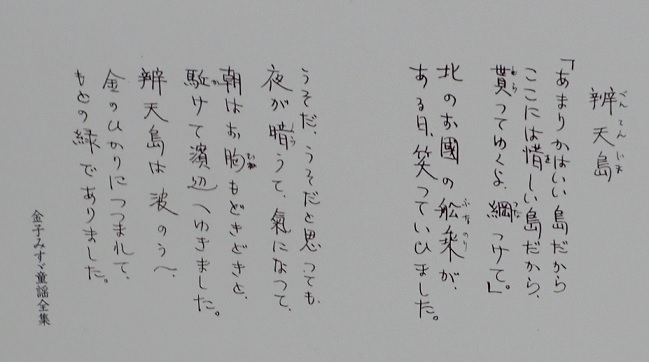 辨天島
べんてんじま
「あまりかはいい島だから
ここには惜しい島だから、
貰つてゆくよ、綱つけて。」
北のお國の船乘が、
ある日、笑つていひました。
うそだ、うそだと思つても、
夜が暗うて、氣になつて、
朝はお胸もどきどきと、
駈けて濱辺へゆきました。
辨天島は波のうへ、
金のひかりにつつまれて、
もとの緑でありました。
金子みすゞ童謡全集